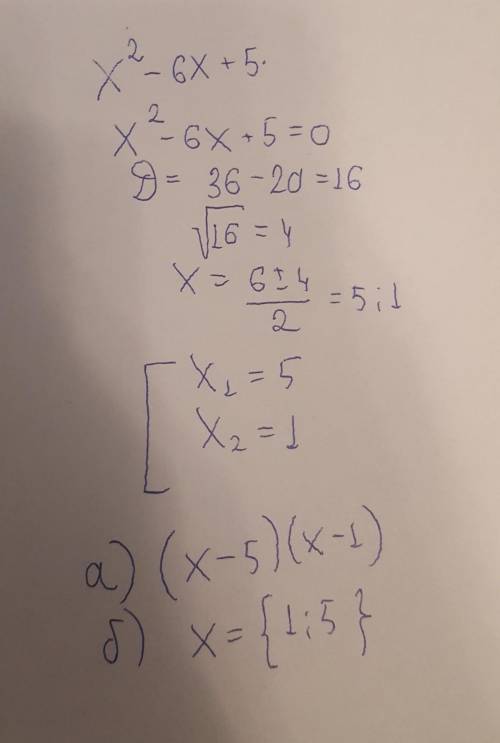 x² - 6x + 5.
x² - 6x + 5 = 0
D = 36 - 20 = 16
√16 = 4
x = (6 ± 4)/2 = 5 ; 1
x₁ = 5
x₂ = 1
а) (x - 5)(x - 1)
б) x = {1 ; 5}